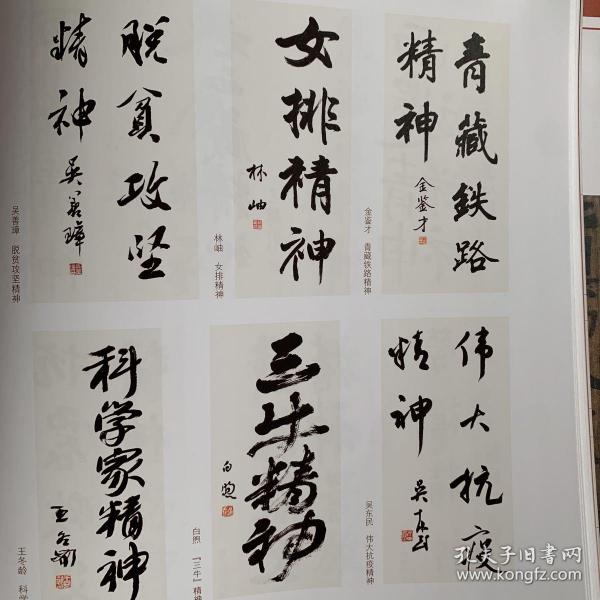 脱贫攻坚
精神
吴善璋
吴善璋 脱贫攻坚精神
女排精神
林岫
林岫 女排精神
青藏铁路
精神
金鉴才
金鉴才 青藏铁路精神
科学家精神
王冬龄
王冬龄 科学
三牛精神
白煦
白煦 “三牛”精神
伟大抗疫
精神
吴东民
吴东民 伟大抗疫精神
孔夫子旧书网
www.kongfz.com